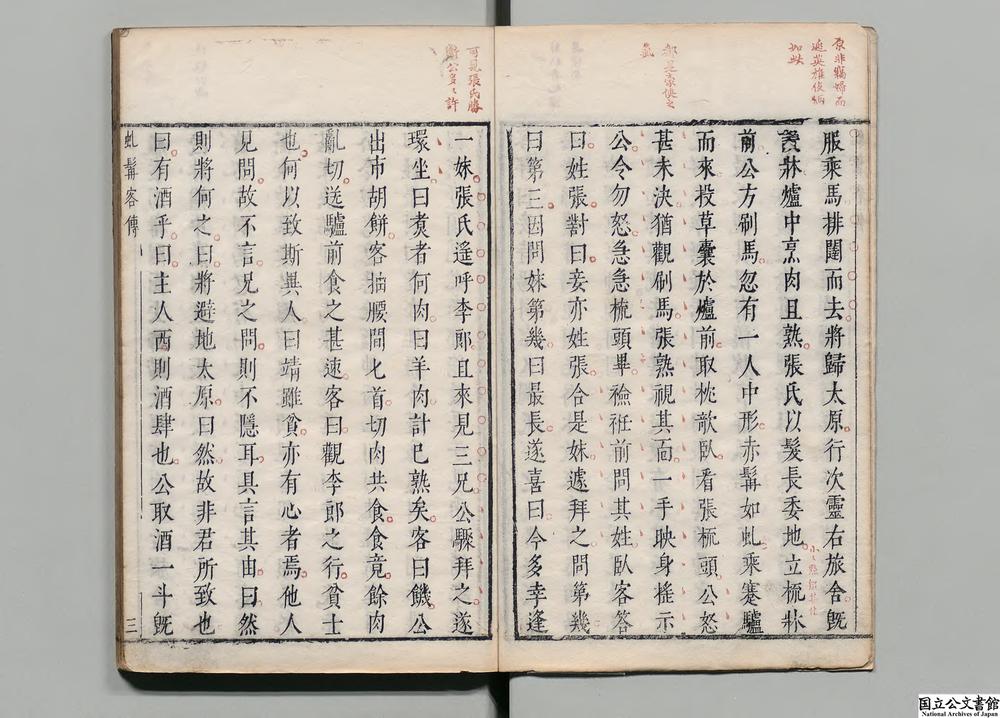 服乘馬排闥而去將歸太原行次靈右旅舍旣
設牀爐中烹肉且熟張氏以髮長委地立梳牀
前公方刷馬忽有一人中形赤髯如虬乘蹇驢
而來投草囊於爐前取枕欹臥看張梳頭公怒
甚未決猶觀刷馬張熟視其面一手映身搖示
公令勿怒急急梳頭畢襝衽前問其姓臥客答
曰姓張對曰妾亦姓張合是妹遽拜之問第幾
曰第三因問妹第幾曰最長遂喜曰今多幸逢
一妹張氏遥呼李郎且來見三兄公驟拜之遂
環坐曰煑者何肉曰羊肉計已熟矣客曰饑公
出市胡餅客抽腰間匕首切肉共食食竟餘肉
亂切送驢前食之甚速客曰觀李郎之行貧士
也何以致斯異人曰靖雖貧亦有心者焉他人
見問故不言兄之問則不隱耳具言其由曰然
則將何之曰將避地太原曰然故非君所致也
曰有酒乎曰主人西則酒肆也公取酒一斗旣
虬髯客傳
三
可見張氏勝
衛公多々許
国立公文書館
National Archives of Japan